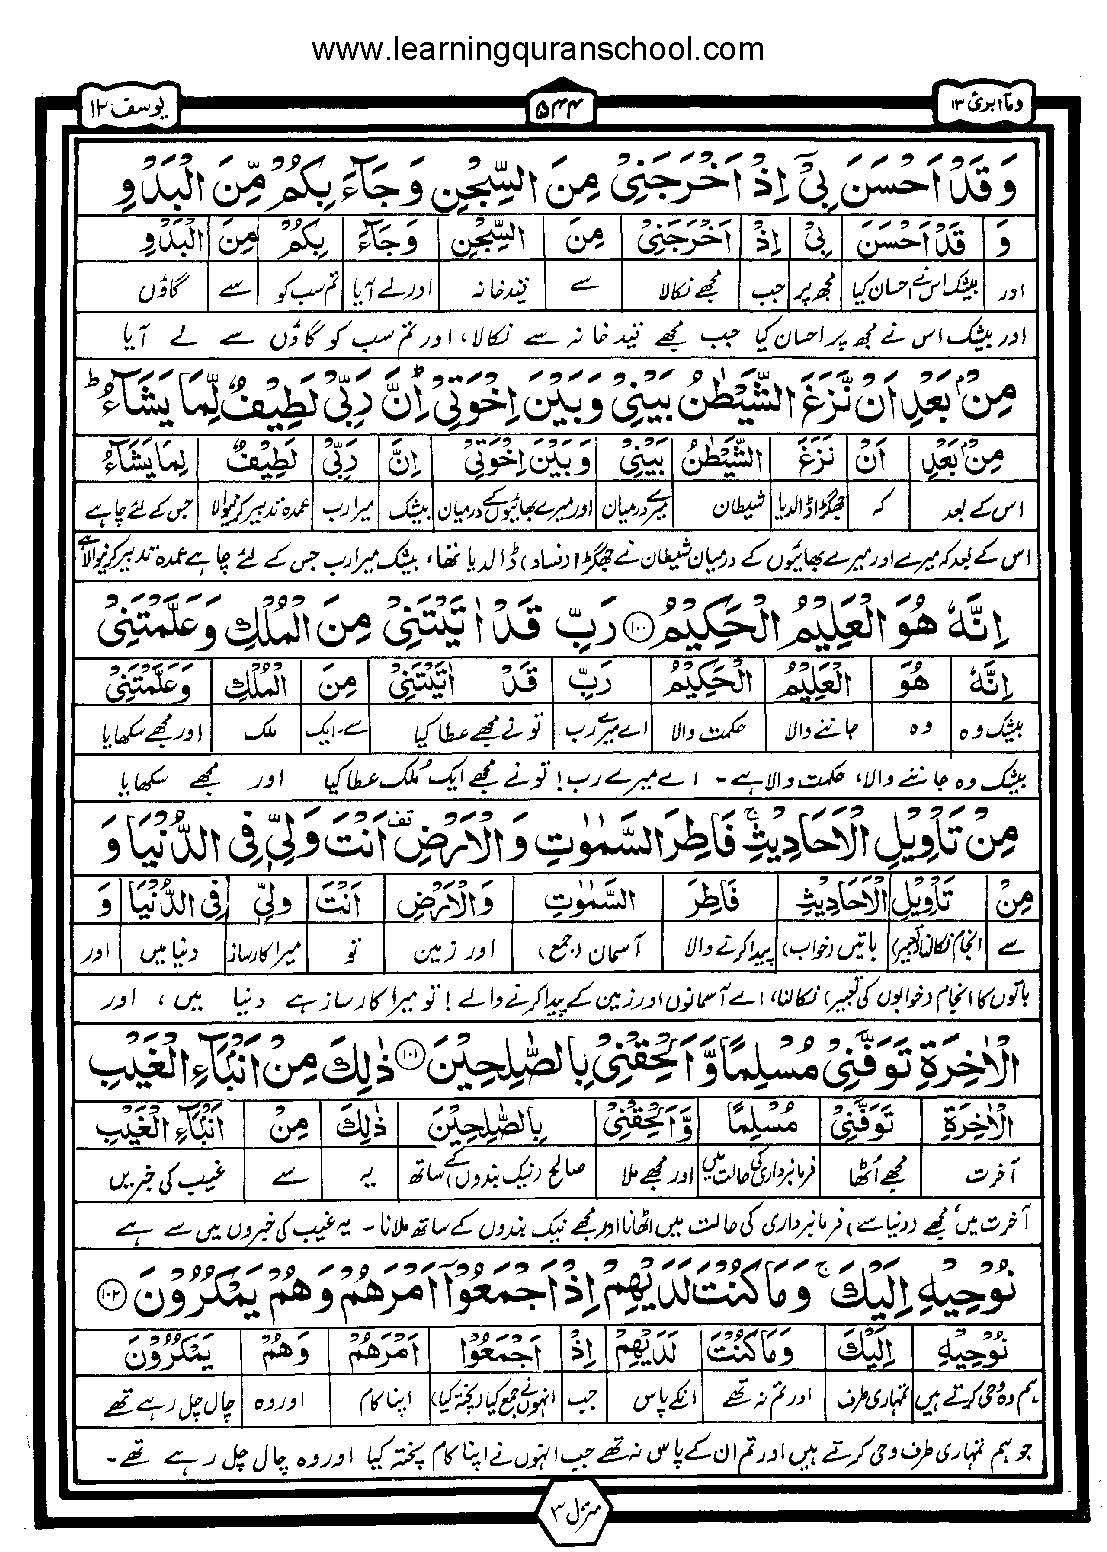 www.learningquranschool.com
وما ابرئ ١٣
۵۴۴
یوسف ١٢
وَ قَدْ اَحْسَنَ بِیْۤ اِذْ اَخْرَجَنِیْ مِنَ السِّجْنِ وَ جَآءَ بِكُمْ مِّنَ الْبَدْوِ
وَ قَدْ اَحْسَنَ بِیْۤ اِذْ اَخْرَجَنِیْ مِنَ السِّجْنِ وَجَآءَ بِكُمْ مِنَ الْبَدْوِ
اور بیشک اس نے احسان کیا مجھ پر جب مجھے نکالا سے قیدخانہ اور لے آیا تم سب کو سے گاؤں
اور بیشک اس نے مجھ پر احسان کیا جب مجھے قید خانہ سے نکالا، اور تم سب کو گاؤں سے لے آیا
مِنْۢ بَعْدِ اَنْ نَّزَغَ الشَّیْطٰنُ بَیْنِیْ وَ بَیْنَ اِخْوَتِیْ ؕ اِنَّ رَبِّیْ لَطِیْفٌ لِّمَا یَشَآءُ ؕ
مِنْۢ بَعْدِ اَنْ نَزَغَ الشَّیْطٰنُ بَیْنِیْ وَ بَیْنَ اِخْوَتِیْ اِنَّ رَبِّیْ لَطِیْفٌ لِمَا یَشَآءُ
اس کے بعد کہ جھگڑا ڈالدیا شیطان میرے درمیان اور میرے بھائیوں کے درمیان بیشک میرا رب عمدہ تدبیر کرنیوالا جس کے لئے چاہے
اس کے بعد کہ میرے اور میرے بھائیوں کے درمیان شیطان نے جھگڑا (فساد) ڈالدیا تھا، بیشک میرا رب جس کے لئے چاہے عمدہ تدبیر کرنیوالا ہے
اِنَّهٗ هُوَ الْعَلِیْمُ الْحَكِیْمُ ۝١٠٠ رَبِّ قَدْ اٰتَیْتَنِیْ مِنَ الْمُلْكِ وَ عَلَّمْتَنِیْ
اِنَّهٗ هُوَ الْعَلِیْمُ الْحَكِیْمُ رَبِّ قَدْ اٰتَیْتَنِیْ مِنَ الْمُلْكِ وَعَلَّمْتَنِیْ
بیشک وہ وہ جاننے والا حکمت والا اے میرے رب تو نے مجھے عطا کیا سے۔ایک ملک اور مجھے سکھایا
بیشک وہ جاننے والا، حکمت والا ہے۔ اے میرے رب! تو نے مجھے ایک مُلک عطا کیا اور مجھے سکھایا
مِنْ تَاْوِیْلِ الْاَحَادِیْثِ ۚ فَاطِرَ السَّمٰوٰتِ وَ الْاَرْضِ قف اَنْتَ وَلِیّٖ فِی الدُّنْیَا وَ
مِنْ تَاْوِیْلِ الْاَحَادِیْثِ فَاطِرَ السَّمٰوٰتِ وَالْاَرْضِ اَنْتَ وَلِیّٖ فِی الدُّنْیَا وَ
سے انجام نکالنا (تعبیر) باتیں (خواب) پیدا کرنے والا آسمان (جمع) اور زمین تو میرا کارساز دنیا میں اور
باتوں کا انجام (خوابوں کی تعبیر) نکالنا، اے آسمانوں اور زمین کے پیدا کرنے والے! تو میرا کارساز ہے دنیا میں، اور
الْاٰخِرَةِ ۚ تَوَفَّنِیْ مُسْلِمًا وَّ اَلْحِقْنِیْ بِالصّٰلِحِیْنَ ۝١٠١ ذٰلِكَ مِنْ اَنْۢبَآءِ الْغَیْبِ
الْاٰخِرَةِ تَوَفَّنِیْ مُسْلِمًا وَّ اَلْحِقْنِیْ بِالصّٰلِحِیْنَ ذٰلِكَ مِنْ اَنْۢبَآءِ الْغَیْبِ
آخرت مجھے اُٹھا فرمانبرداری کی حالت میں اور مجھے ملا صالح (نیک بندوں) کے ساتھ یہ سے غیب کی خبریں
آخرت میں، مجھے (دنیا سے) فرمانبرداری کی حالت میں اٹھانا اور مجھے نیک بندوں کے ساتھ ملانا۔ یہ غیب کی خبروں میں سے ہے
نُوْحِیْهِ اِلَیْكَ ۚ وَ مَا كُنْتَ لَدَیْهِمْ اِذْ اَجْمَعُوْۤا اَمْرَهُمْ وَ هُمْ یَمْكُرُوْنَ ۝١٠٢
نُوْحِیْهِ اِلَیْكَ وَمَا كُنْتَ لَدَیْهِمْ اِذْ اَجْمَعُوْۤا اَمْرَهُمْ وَهُمْ یَمْكُرُوْنَ
ہم وہ وحی کرتے ہیں تمہاری طرف اور تم نہ تھے انکے پاس جب انہوں نے جمع کیا (پختہ کیا) اپنا کام اور وہ چال چل رہے تھے
جو ہم تمہاری طرف وحی کرتے ہیں اور تم ان کے پاس نہ تھے جب انہوں نے اپنا کام پختہ کیا اور وہ چال چل رہے تھے۔
منزل ٣